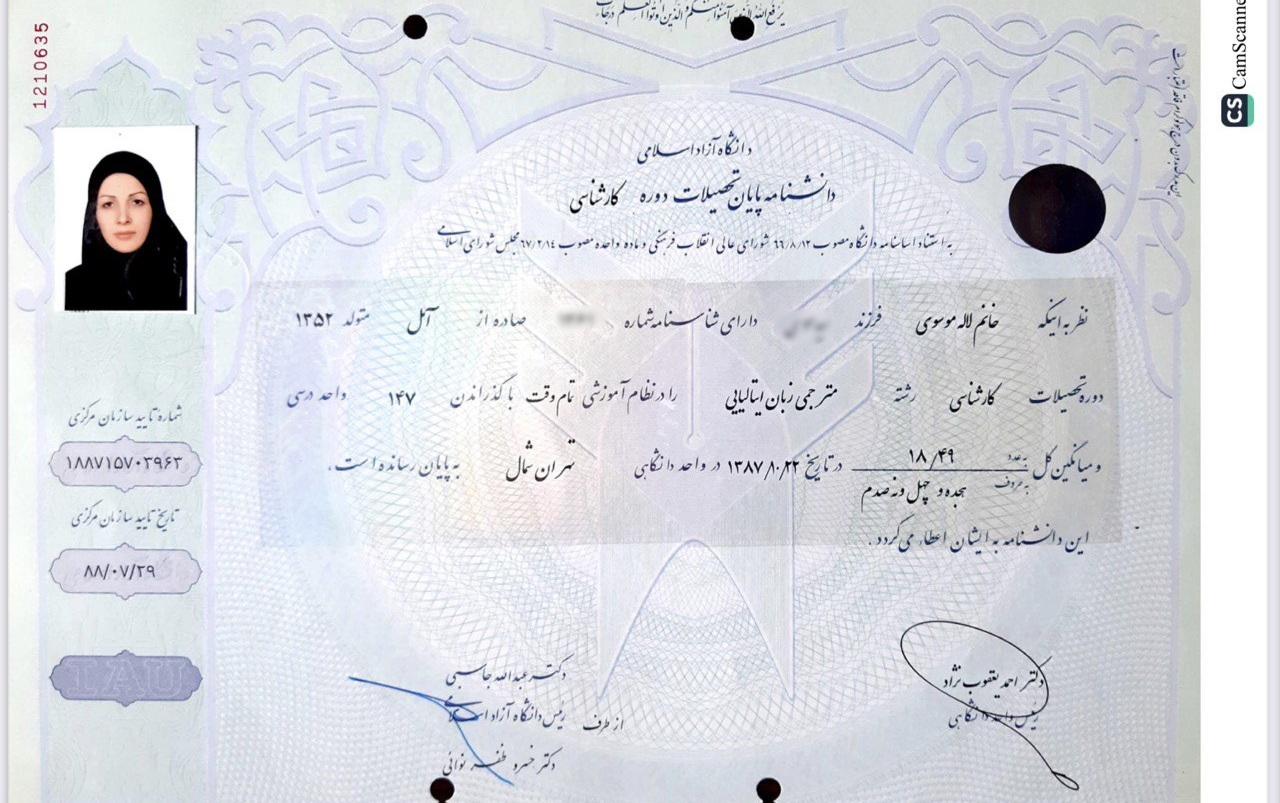 یرفع الله الذین آمنوا منکم والذین اوتوا العلم درجات
1210635
CS CamScanne
دانشگاه آزاد اسلامی
دانشنامه پایان تحصیلات دوره کارشناسی
به استناد اساسنامه دانشگاه مصوب ۶۶/۸/۱۲ شورای عالی انقلاب فرهنگی و ماده واحده مصوب ۶۷/۲/۱۴ مجلس شورای اسلامی
نظر به اینکه خانم لاله موسوی فرزند دارای شناسنامه شماره صادره از آمل متولد ۱۳۵۲
دوره تحصیلات کارشناسی رشته مترجمی زبان ایتالیایی را در نظام آموزشی تمام وقت با گذراندن ۱۴۷ واحد درسی
و میانگین کل به عدد ۱۸/۴۹ به حروف هجده و چهل و نه صدم در تاریخ ۱۳۸۷/۱۰/۲۲ در واحد دانشگاهی تهران شمال به پایان رسانده است.
این دانشنامه به ایشان اعطاء می‌گردد.
شماره تایید سازمان مرکزی
۱۸۸۷۱۵۷۰۳۹۶۳
تاریخ تایید سازمان مرکزی
۸۸/۰۷/۲۹
IAU
دکتر احمد یعقوب نژاد
رئیس واحد دانشگاهی
دکتر عبدالله جاسبی
از طرف رئیس دانشگاه آزاد اسلامی
دکتر خسرو ظفر نوائی